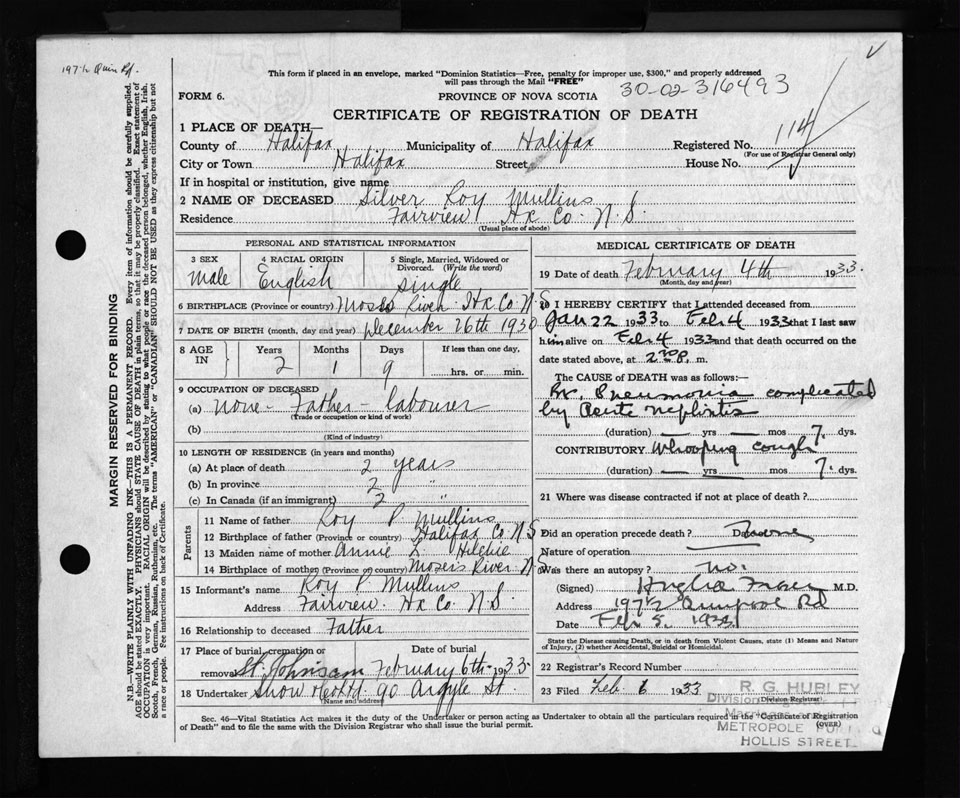 197½ Quin Rd.
This form if placed in an envelope, marked "Dominion Statistics—Free, penalty for improper use, $300," and properly addressed
will pass through the Mail "FREE"
30-02-316493
FORM 6.
PROVINCE OF NOVA SCOTIA
CERTIFICATE OF REGISTRATION OF DEATH
1 PLACE OF DEATH—
County of Halifax Municipality of Halifax Registered No. 114
(For use of Registrar General only)
City or Town Halifax Street House No.
If in hospital or institution, give name
2 NAME OF DECEASED Silver Roy Mullins
Residence Fairview Hx Co. N.S.
(Usual place of abode)
PERSONAL AND STATISTICAL INFORMATION
3 SEX 4 RACIAL ORIGIN 5 Single, Married, Widowed or
Divorced. (Write the word)
Male English Single
6 BIRTHPLACE (Province or country) Moses River Hx Co N.S
7 DATE OF BIRTH (month, day and year) December 26th 1930
8 AGE IN Years Months Days If less than one day,
2 1 9 hrs. or min.
9 OCCUPATION OF DECEASED
(a) None - Father - labourer
(Trade or occupation or kind of work)
(b)
(Kind of industry)
10 LENGTH OF RESIDENCE (in years and months)
(a) At place of death 2 years
(b) In province 2 "
(c) In Canada (if an immigrant) 2 "
Parents
11 Name of father Roy P Mullins
12 Birthplace of father (Province or country) Halifax Co N.S
13 Maiden name of mother Annie L.
14 Birthplace of mother (Province or country) Mosers River N.S
15 Informant's name Roy P. Mullins
Address Fairview. Hx Co N.S.
16 Relationship to deceased Father
17 Place of burial, cremation or Date of burial
removal St. Johns cem February 6th 1933
18 Undertaker Snow & Co Ltd. 90 Argyle St.
(Name and address)
MEDICAL CERTIFICATE OF DEATH
19 Date of death February 4th 1933.
(Month, day and year)
20 I HEREBY CERTIFY that I attended deceased from
Jan 22 1933 to Feb 4 1933 that I last saw
him alive on Feb 4 1933 and that death occurred on the
date stated above, at 2 30 P. m.
The CAUSE OF DEATH was as follows:—
Br. Pneumonia complicated
by Acute Nephritis
(duration) yrs mos 7. dys.
CONTRIBUTORY Whooping cough
(duration) yrs mos 7. dys.
21 Where was disease contracted if not at place of death?
Did an operation precede death? Date of
Nature of operation
Was there an autopsy? No.
(Signed) M.D.
Address 197½ Quinpool Rd
Date Feb 5. 1933
State the Disease causing Death, or in death from Violent Causes, state (1) Means and Nature
of Injury, (2) whether Accidental, Suicidal or Homicidal.
22 Registrar's Record Number
23 Filed Feb 6 1933
R. G. HUBLEY
(Division Registrar)
METROPOLE
HOLLIS STREET
Sec. 46—Vital Statistics Act makes it the duty of the Undertaker or person acting as Undertaker to obtain all the particulars required in the "Certificate of Registration
of Death" and to file the same with the Division Registrar who shall issue the burial permit.
(OVER)
MARGIN RESERVED FOR BINDING
N.B.—WRITE PLAINLY WITH UNFADING INK—THIS IS A PERMANENT RECORD. Every item of information should be carefully supplied.
AGE should be stated EXACTLY. PHYSICIANS should STATE CAUSE OF DEATH in plain terms, so that it may be properly classified. Exact statement of
OCCUPATION is very important. RACIAL ORIGIN will be described by stating to what people or race the deceased person belonged, whether English, Irish,
Scotch, French, German, Russian, Ruthenian, etc. The terms "AMERICAN" or "CANADIAN" SHOULD NOT BE USED as they express citizenship but not
a race or people. See instructions on back of Certificate.